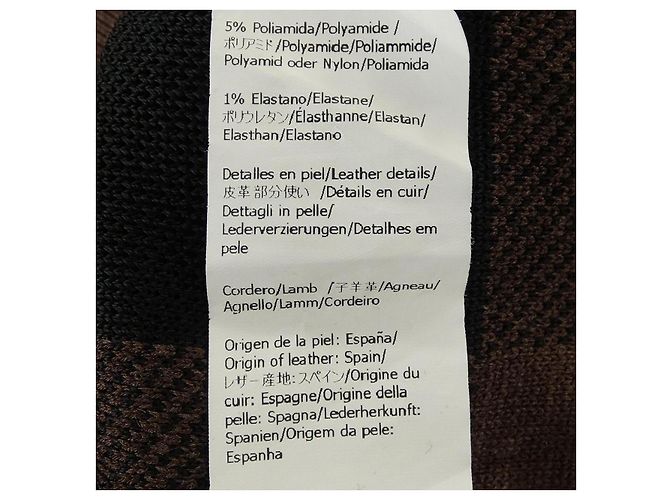 5% Poliamida/Polyamide /
ポリアミド/Polyamide/Poliammide/
Polyamid oder Nylon/Poliamida
1% Elastano/Elastane/
ポリウレタン/Élasthanne/Elastan/
Elasthan/Elastano
Detalles en piel/Leather details/
皮革部分使い /Détails en cuir/
Dettagli in pelle/
Lederverzierungen/Detalhes em
pele
Cordero/Lamb /子羊革/Agneau/
Agnello/Lamm/Cordeiro
Origen de la piel: España/
Origin of leather: Spain/
レザー産地:スペイン/Origine du
cuir: Espagne/Origine della
pelle: Spagna/Lederherkunft:
Spanien/Origem da pele:
Espanha